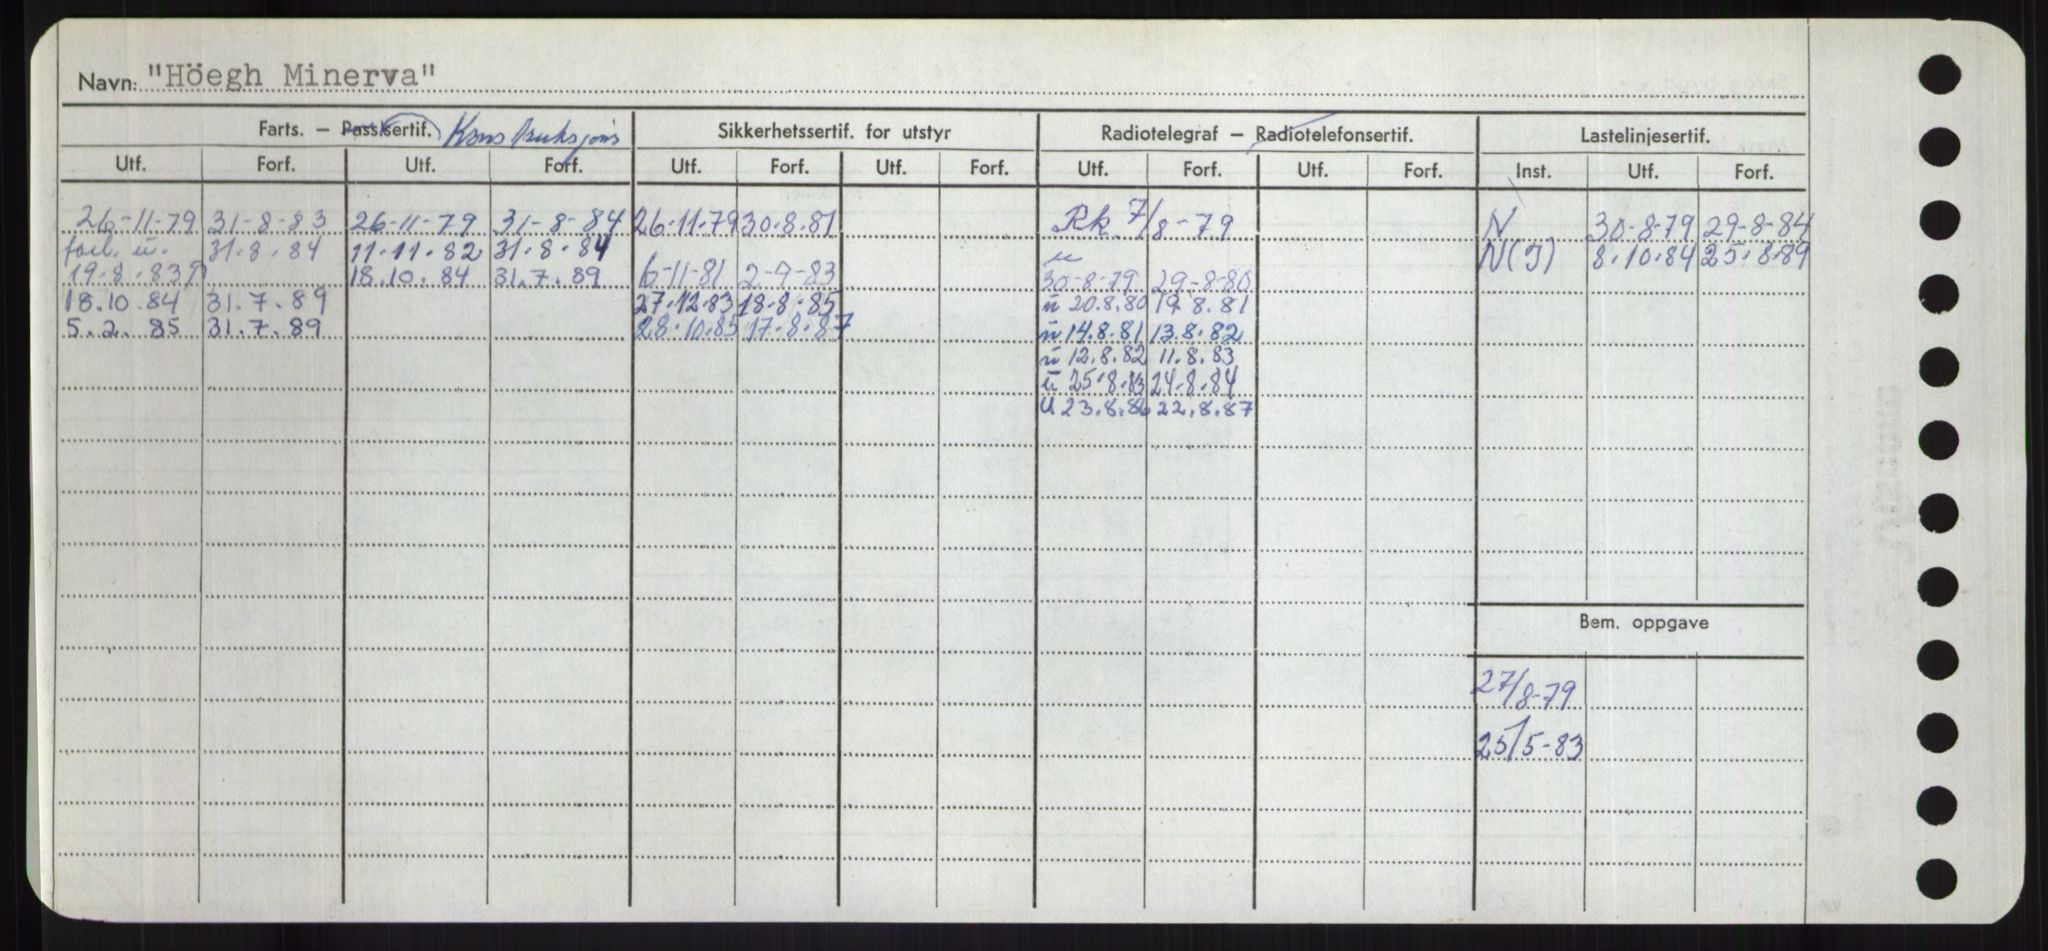 Navn: "Höegh Minerva"
Farts. – Passksertif. Konstruksjons Sikkerhetssertif. for utstyr Radiotelegraf – Radiotelefonsertif. Lastelinjesertif.
Utf. Forf. Utf. Forf. Utf. Forf. Utf. Forf. Utf. Forf. Utf. Forf. Inst. Utf. Forf.
26-11-79 31-8-83 26-11-79 31-8-84 26-11-79 30.8.81 Rk 7/8-79 N 30-8-79 29-8-84
forl. u. 31.8.84 11.11.82 31.8.84 u N(I) 8.10.84 25.8.89
19.8.83 18.10.84 31.7.89 6-11-81 2-9-83 30-8-79 29-8-80
18.10.84 31.7.89 27.12.83 18.8.85 u 20.8.80 19.8.81
5.2.85 31.7.89 28.10.85 17.8.87 u 14.8.81 13.8.82
u 12.8.82 11.8.83
u 25.8.83 24.8.84
u 23.8.86 22.8.87
Bem. oppgave
27/8-79
25/5-83